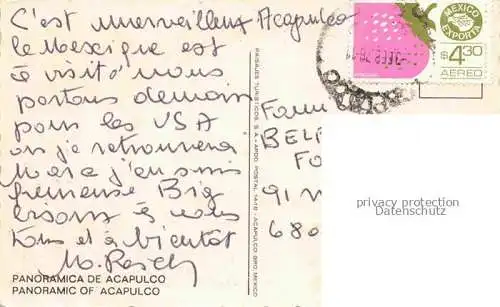 C'est merveilleux Acapulco
le Mexique est
à visité nous
partons demain
pour les USA
où je retrouverai
Mara j'en suis
heureuse Big
bisous à vous
tous et à bientôt
PANORAMICA DE ACAPULCO
PANORAMIC OF ACAPULCO
PAISAJES TURISTICOS S.A. - APDO. POSTAL 1416 - ACAPULCO GRO. MEXICO
MEXICO
EXPORTA
$4.30
AEREO
ACAPULCO
Fam
BELF
Fo
91
680
privacy protection
Datenschutz